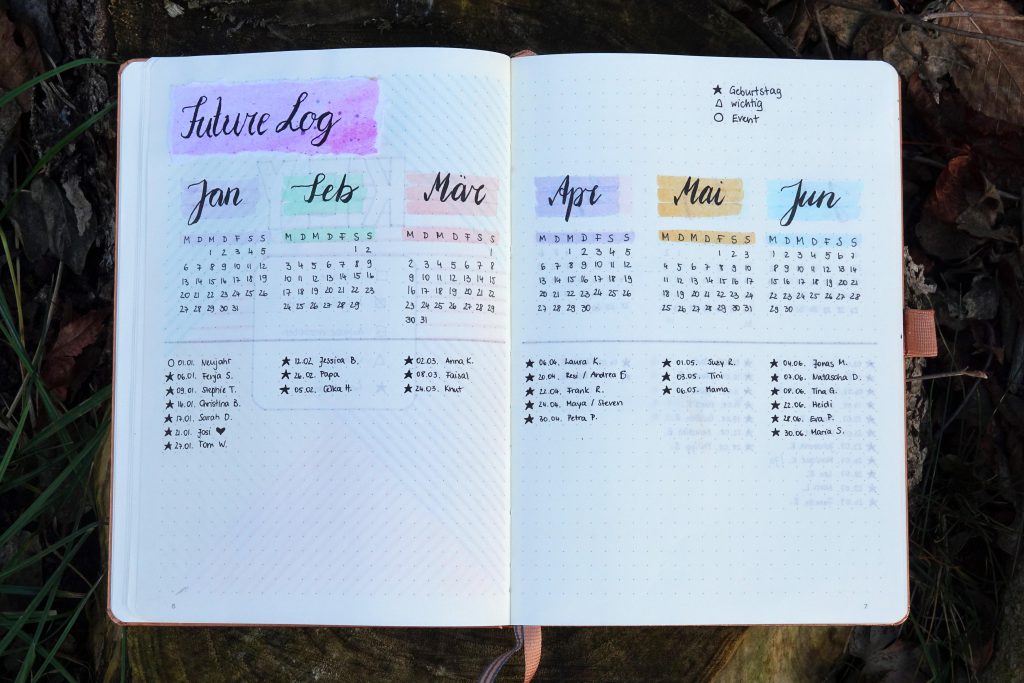 Future Log
Jan
M D M D F S S
1 2 3 4 5
6 7 8 9 10 11 12
13 14 15 16 17 18 19
20 21 22 23 24 25 26
27 28 29 30 31
01.01. Neujahr
06.01. Fenja S.
09.01. Stephie T.
16.01. Christina B.
17.01. Sarah D.
21.01. Josi
27.01. Tom W.
Feb
M D M D F S S
1 2
3 4 5 6 7 8 9
10 11 12 13 14 15 16
17 18 19 20 21 22 23
24 25 26 27 28 29
12.02. Jessica B.
26.02. Papa
05.02. H.
Mär
M D M D F S S
1
2 3 4 5 6 7 8
9 10 11 12 13 14 15
16 17 18 19 20 21 22
23 24 25 26 27 28 29
30 31
02.03. Anna K.
08.03. Faisal
24.03. Knut
6
★ Geburtstag
△ wichtig
○ Event
Apr
M D M D F S S
1 2 3 4 5
6 7 8 9 10 11 12
13 14 15 16 17 18 19
20 21 22 23 24 25 26
27 28 29 30
06.04. Laura K.
20.04. Resi / Andrea B.
22.04. Frank R.
24.04. Maya / Steven
30.04. Petra P.
Mai
M D M D F S S
1 2 3
4 5 6 7 8 9 10
11 12 13 14 15 16 17
18 19 20 21 22 23 24
25 26 27 28 29 30 31
01.05. Susy R.
03.05. Tini
06.05. Mama
Jun
M D M D F S S
1 2 3 4 5 6 7
8 9 10 11 12 13 14
15 16 17 18 19 20 21
22 23 24 25 26 27 28
29 30
04.06. Jonas M.
07.06. Natascha D.
08.06. Tina G.
22.06. Heidi
28.06. Eva P.
30.06. Maria S.
7